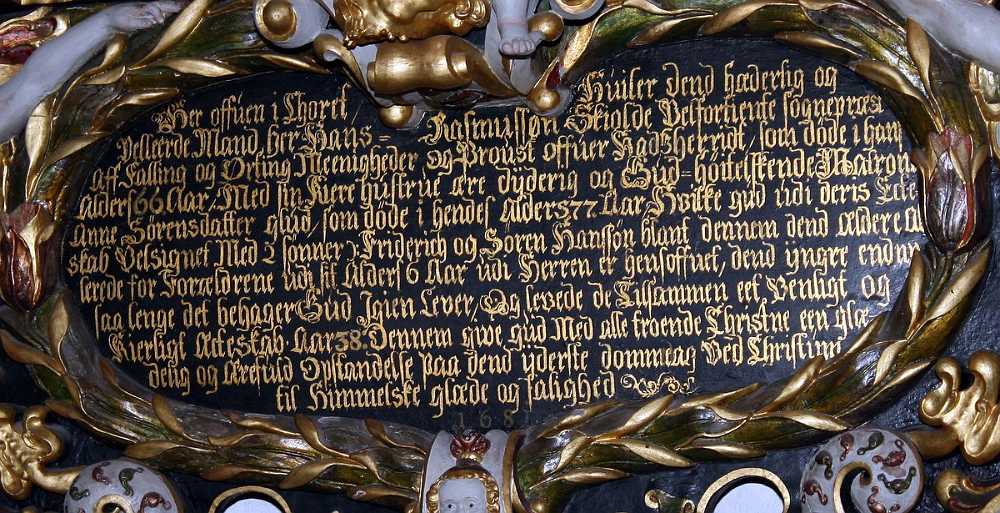 Her offuen i Choret Huiler dend hæderlig og
Vellærde Mand, her Hans = Rasmussøn Skiolde Velfortiente sognepræst
Aff Falling og Ørting Meenigheder og Proust offuer Hadsherrigt, som døde i hans
Alders 66 Aar, Med sin Kiere hustrue ære dyderig og Gud = høitelskende Matron
Anne Sörensdatter glud, som døde i hendes Alders 77 Aar. Hvilke gud udi deris Ecte
skab Velsignet Med 2 sønner, Friderich og Søren Hanssøn blant dennem dend ældere al
lerede for Forældrene udi sit Alders 6 Aar udi Herren er hensoffuet, dend yngre endnu
saa lenge det behager Gud Igien Lever, Og levede de Tilsammen eet Venligt og
Kierligt Ecteskab Aar 38. Dennem give gud Med alle troende Christne een glæ
delig og ærefuld Opstandelse paa dend yderste dommedag Ved Christum
til Himmelske glæde og salighed